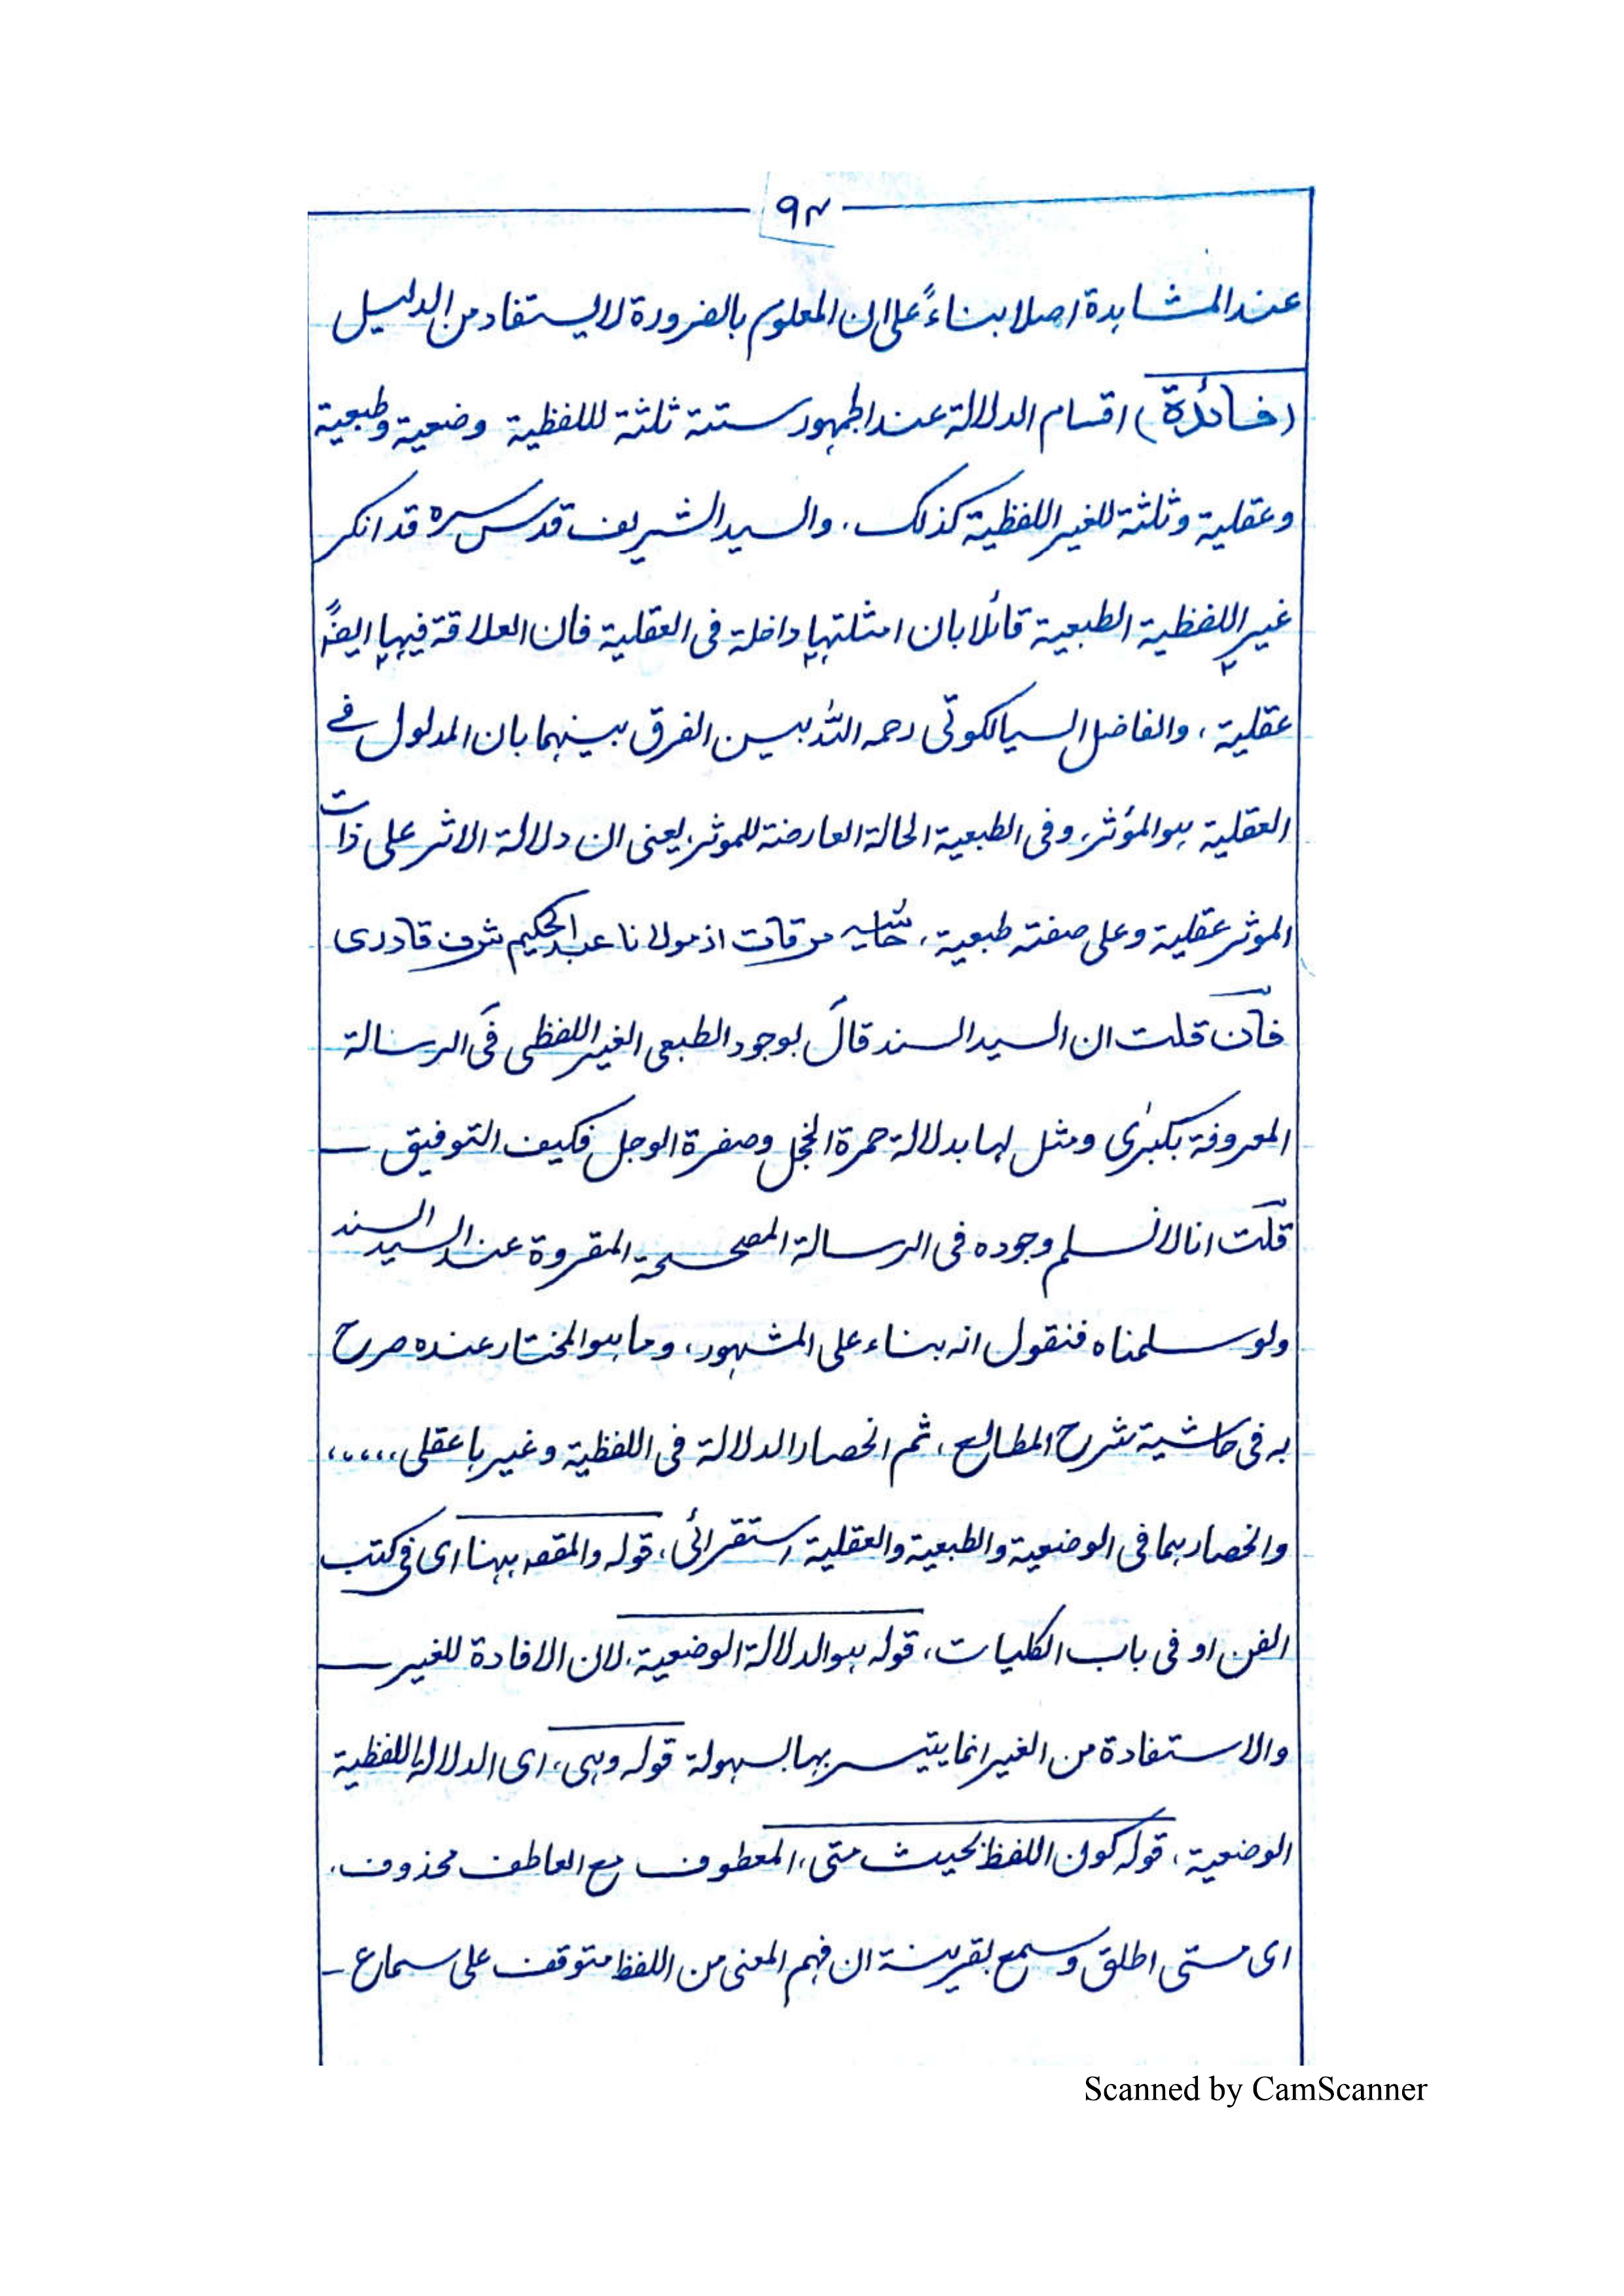 ۹۴
عند المشاہدۃ اصلا بناءً علی ان المعلوم بالضرورۃ لا یستفاد من الدلیل
(فائدۃ) اقسام الدلالۃ عند الجمہور ستۃ ثلثۃ للفظیۃ وضعیۃ وطبعیۃ
وعقلیۃ وثلثۃ للغیر اللفظیۃ کذلک، والسید الشریف قدس سرہ قد انکر
غیر اللفظیۃ الطبعیۃ قائلا بان امثلتہا داخلۃ فی العقلیۃ فان العلاقۃ فیہا ایضًا
عقلیۃ، والفاضل السیالکوتی رحمہ اللہ بیین الفرق بینہما بان المدلول فے
العقلیۃ ہو المؤثر، وفی الطبعیۃ الحالۃ العارضۃ للموثر، یعنی ان دلالۃ الاثر علی ذات
الموثر عقلیۃ وعلی صفتہ طبعیۃ، حاشیہ مرقات از مولانا عبدالحکیم شرف قادری
فان قلت ان السید السند قال بوجود الطبعی الغیر اللفظی فی الرسالۃ
المعروفۃ بکبرٰی ومثل لہا بدلالۃ حمرۃ الخجل وصفرۃ الوجل فکیف التوفیق ــ
قلت انا لا نسلم وجودہ فی الرسالۃ المصححۃ المقروۃ عند السید السند
ولو سلمناہ فنقول انہ بناء علی المشہور، وما ہو المختار عندہ صرح
بہ فی حاشیۃ شرح المطالع، ثم انحصار الدلالۃ فی اللفظیۃ وغیرہا عقلی ،،،،،
وانحصارہما فی الوضعیۃ والطبعیۃ والعقلیۃ استقرائی، قولہ والمقصہ ہہنا ای فی کتب
الفن او فی باب الکلیات، قولہ ہو الدلالۃ الوضعیۃ، لان الافادۃ للغیر ــ
والاستفادۃ من الغیر انما یتیسر بہا بسہولۃ قولہ وہی، ای الدلالۃ اللفظیۃ
الوضعیۃ، قولہ کون اللفظ بحیث متی، المعطوف مع العاطف محذوف،
ای متی اطلق وسمع بقرینۃ ان فہم المعنی من اللفظ متوقف علی سماع ــ
Scanned by CamScanner